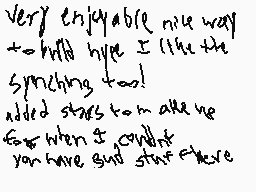 very enjoyable nice way
to build hype I like the
synching too!
added stars to make up
for when I couldnt
you have gud stuf there